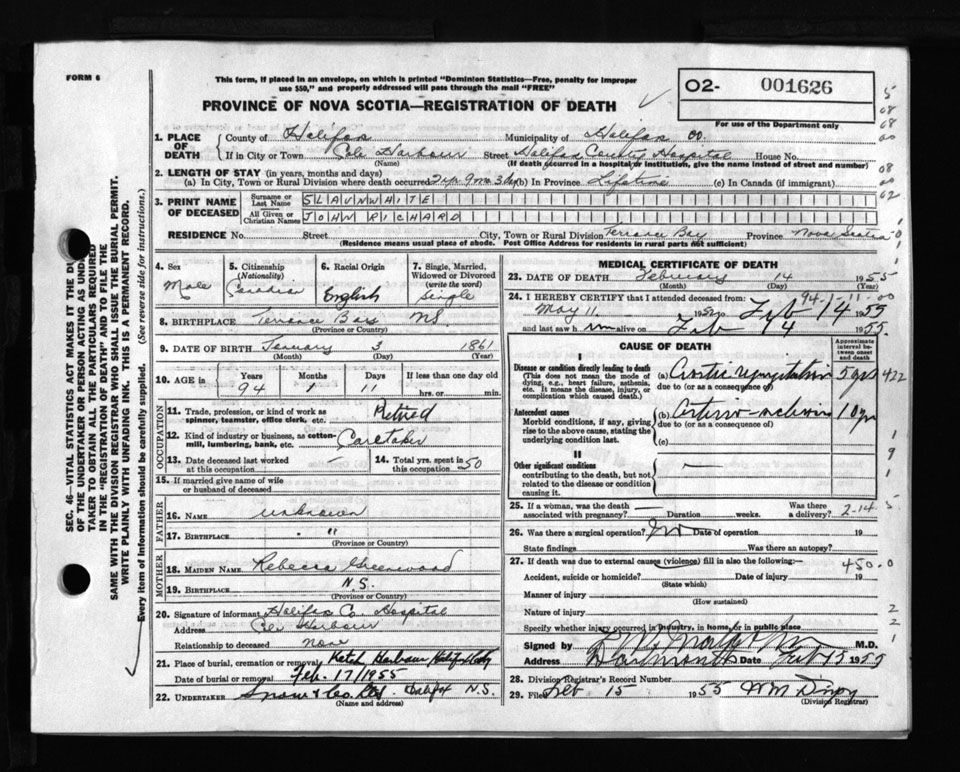 FORM 6
This form, if placed in an envelope, on which is printed "Dominion Statistics—Free, penalty for improper
use $50," and properly addressed will pass through the mail "FREE"
PROVINCE OF NOVA SCOTIA—REGISTRATION OF DEATH
O2- 001626
For use of the Department only
1. PLACE OF DEATH
County of Halifax Municipality of Halifax Co.
If in City or Town Cole Harbour Street Halifax County Hospital House No.
(Name) (If death occurred in a hospital or institution, give the name instead of street and number)
2. LENGTH OF STAY (in years, months and days)
(a) In City, Town or Rural Division where death occurred 2 yrs 9 mo 3 days (b) In Province Lifetime (c) In Canada (if immigrant)
3. PRINT NAME OF DECEASED
Surname or Last Name SLAUNWHITE
All Given or Christian Names JOHN RICHARD
RESIDENCE No. Street City, Town or Rural Division Terrance Bay Province Nova Scotia
(Residence means usual place of abode. Post Office Address for residents in rural parts not sufficient)
4. Sex Male
5. Citizenship (Nationality) Canadian
6. Racial Origin English
7. Single, Married, Widowed or Divorced (write the word) Single
8. BIRTHPLACE Terrance Bay NS.
(Province or Country)
9. DATE OF BIRTH January 3 1861
(Month) (Day) (Year)
10. AGE in Years Months Days If less than one day old
94 1 11 hrs. or min.
OCCUPATION
11. Trade, profession, or kind of work as spinner, teamster, office clerk, etc. Retired
12. Kind of industry or business, as cotton-mill, lumbering, bank, etc. Caretaker
13. Date deceased last worked at this occupation –
14. Total yrs. spent in this occupation 50
15. If married give name of wife or husband of deceased
FATHER
16. NAME unknown
17. BIRTHPLACE "
(Province or Country)
MOTHER
18. MAIDEN NAME Rebecca Greenwood
19. BIRTHPLACE N.S.
(Province or Country)
20. Signature of informant Halifax Co. Hospital
Address Cole Harbour
Relationship to deceased none
21. Place of burial, cremation or removal Ketch Harbour
Date of burial or removal Feb. 17/1955
22. UNDERTAKER Snow & Co. Ltd. Halifax N.S.
(Name and address)
MEDICAL CERTIFICATE OF DEATH
23. DATE OF DEATH February 14 1955
(Month) (Day)
24. I HEREBY CERTIFY that I attended deceased from: 94-1-11-00
May 11 1952 to Feb 14 1955
and last saw him alive on Feb 14 1955.
CAUSE OF DEATH
Approximate interval between onset and death
I
Disease or condition directly leading to death
(This does not mean the mode of dying, e.g., heart failure, asthenia, etc. It means the disease, injury, or complication which caused death.)
(a) Aortic regurgitation 5 yrs 422
due to (or as a consequence of)
Antecedent causes
Morbid conditions, if any, giving rise to the above cause, stating the underlying condition last.
(b) 10 yrs
due to (or as a consequence of)
(c)
II
Other significant conditions
contributing to the death, but not related to the disease or condition causing it.
—
25. If a woman, was the death associated with pregnancy? Duration weeks. Was there a delivery? 2-14
26. Was there a surgical operation? No Date of operation 19
State findings Was there an autopsy?
27. If death was due to external causes (violence) fill in also the following:— 450-0
Accident, suicide or homicide? Date of injury 19
(State which)
Manner of injury
(How sustained)
Nature of injury
Specify whether injury occurred in industry, in home, or in public place
Signed by M.D.
Address Dartmouth Date Feb 15 1955
28. Division Registrar's Record Number
29. Filed Feb 15 1955
(Division Registrar)
SEC. 46—VITAL STATISTICS ACT MAKES IT THE DU
OF THE UNDERTAKER OR PERSON ACTING AS UND
TAKER TO OBTAIN ALL THE PARTICULARS REQUIRED
IN THE "REGISTRATION OF DEATH" AND TO FILE THE
SAME WITH THE DIVISION REGISTRAR WHO SHALL ISSUE THE BURIAL PERMIT.
WRITE PLAINLY WITH UNFADING INK. THIS IS A PERMANENT RECORD.
Every item of information should be carefully supplied. (See reverse side for instructions.)